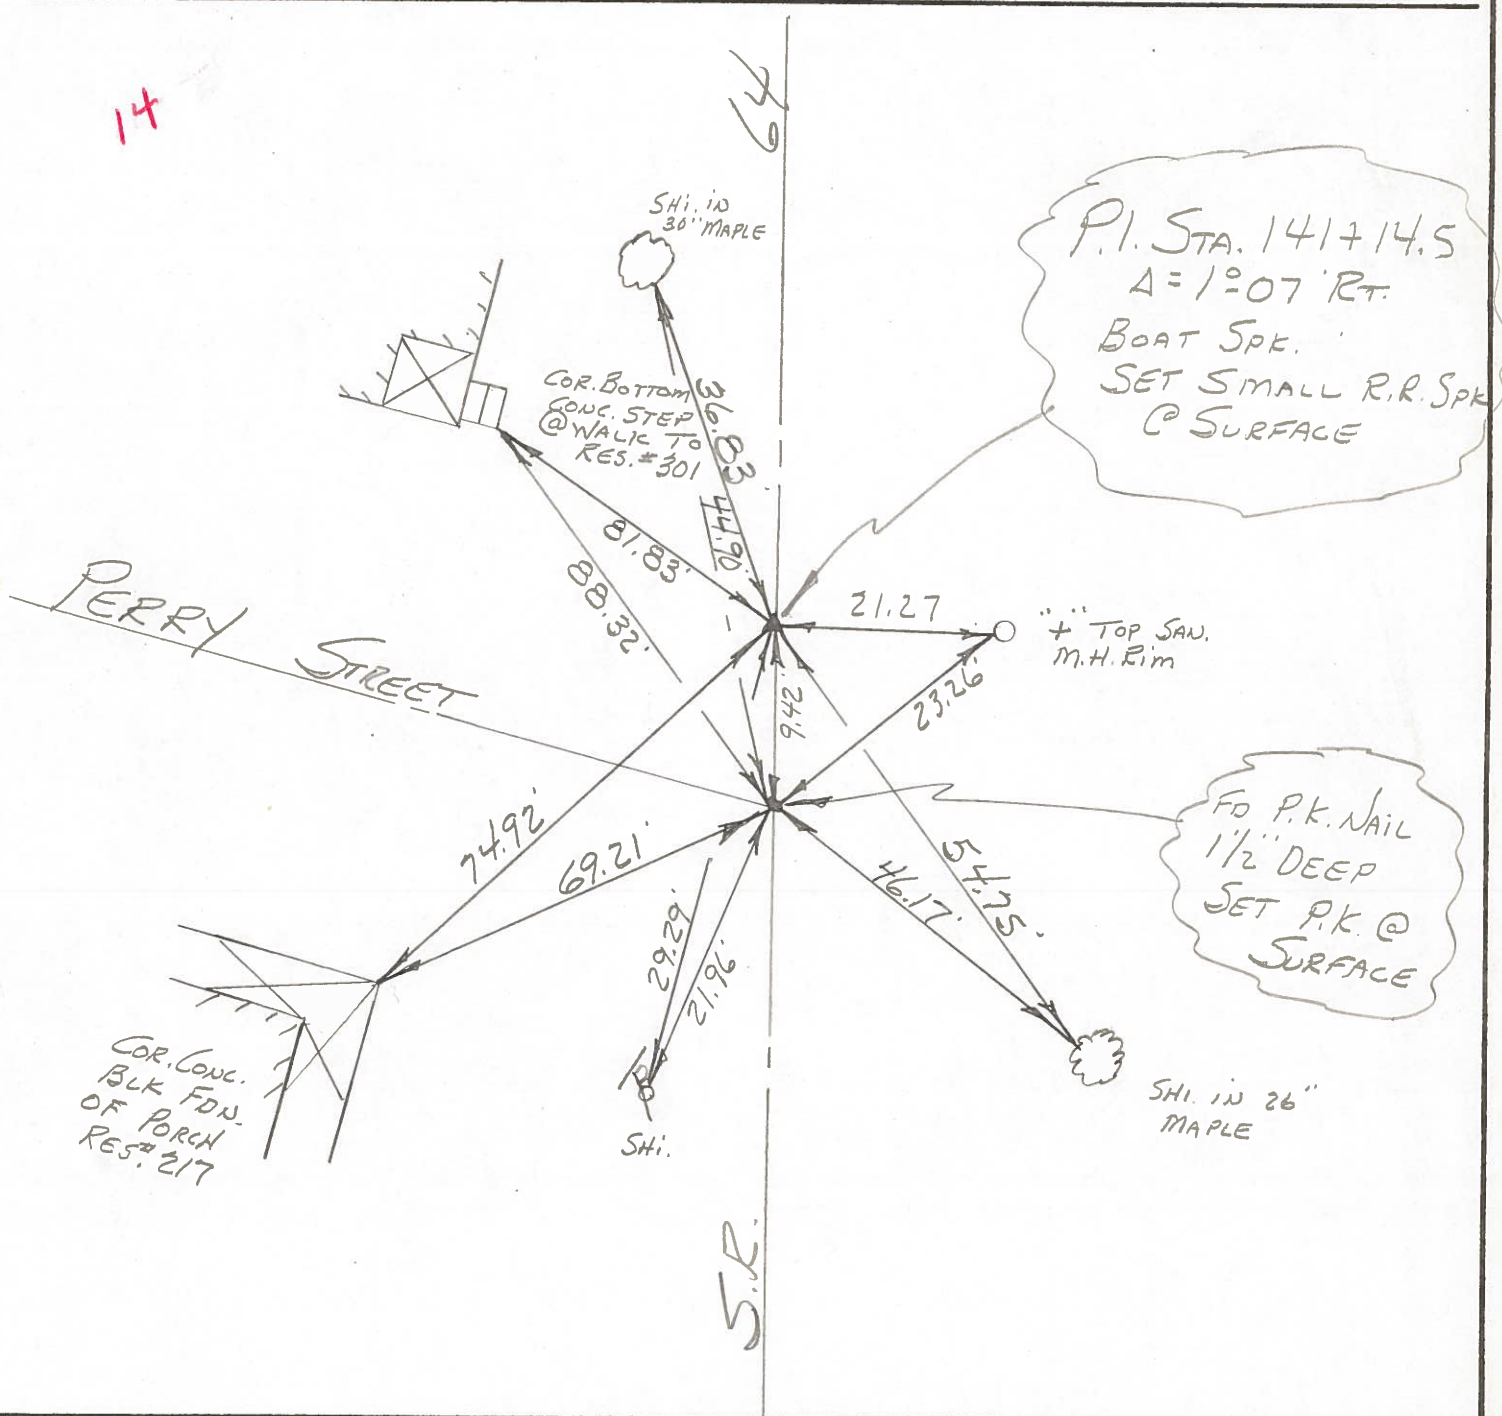 14
64
SHI. IN
30" MAPLE
P.I. STA. 141+14.5
Δ = 1°07' RT.
BOAT SPK.
SET SMALL R.R. SPK
@ SURFACE
COR. BOTTOM
CONC. STEP
@ WALK TO
RES. #301
36.83
44.90'
81.83'
88.32'
21.27
"+" TOP SAN.
M.H. RIM
23.26'
9.42'
PERRY STREET
74.92'
69.21'
54.75'
46.17'
FD P.K. NAIL
1 1/2" DEEP
SET P.K. @
SURFACE
29.29'
21.96'
COR. CONC.
BLK FDN.
OF PORCH
RES. #217
SHI.
SHI. IN 26"
MAPLE
S.R.